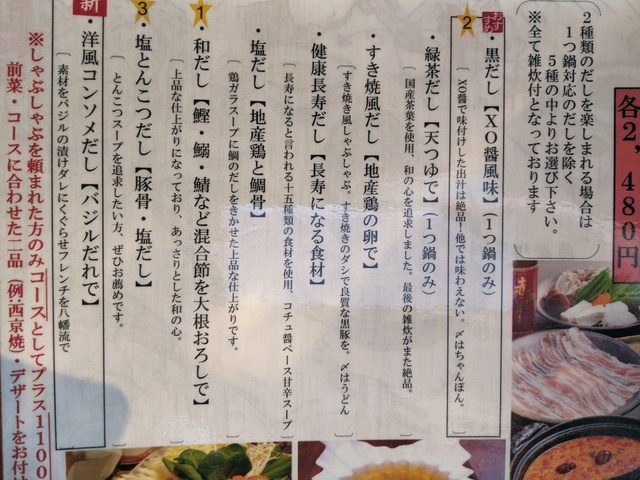 各2,480円
2種類のだしを楽しまれる場合は
1つ鍋対応のだしを除く
5種の中よりお選び下さい。
※全て雑炊付となっております
おすすめ
2
・黒だし【XO醤風味】(1つ鍋のみ)
XO醤で味付けした出汁は絶品!他では味わえない。〆はちゃんぽん。
・緑茶だし【天つゆで】(1つ鍋のみ)
国産茶葉を使用、和の心を追求しました。最後の雑炊がまた絶品。
・すき焼風だし【地産鶏の卵で】
すき焼き風しゃぶしゃぶ。すき焼きのダシで良質な黒豚を。〆はうどん
・健康長寿だし【長寿になる食材】
長寿になると言われる十五種類の食材を使用、コチュ醤ベース甘辛スープ
・塩だし【地産鶏と鯛骨】
鶏ガラスープに鯛のだしをきかせた上品な仕上がりです。
1
・和だし【鰹・鰯・鯖など混合節を大根おろしで】
上品な仕上がりになっており、あっさりとした和の心。
3
・塩とんこつだし【豚骨・塩だし】
とんこつスープを追求したい方、ぜひお薦めです。
新
・洋風コンソメだし【バジルだれで】
素材をバジルの漬けダレにくぐらせフレンチを八幡流で
※しゃぶしゃぶを頼まれた方のみコースとしてプラス1100
前菜・コースに合わせた二品(例:西京焼・デザートをお付